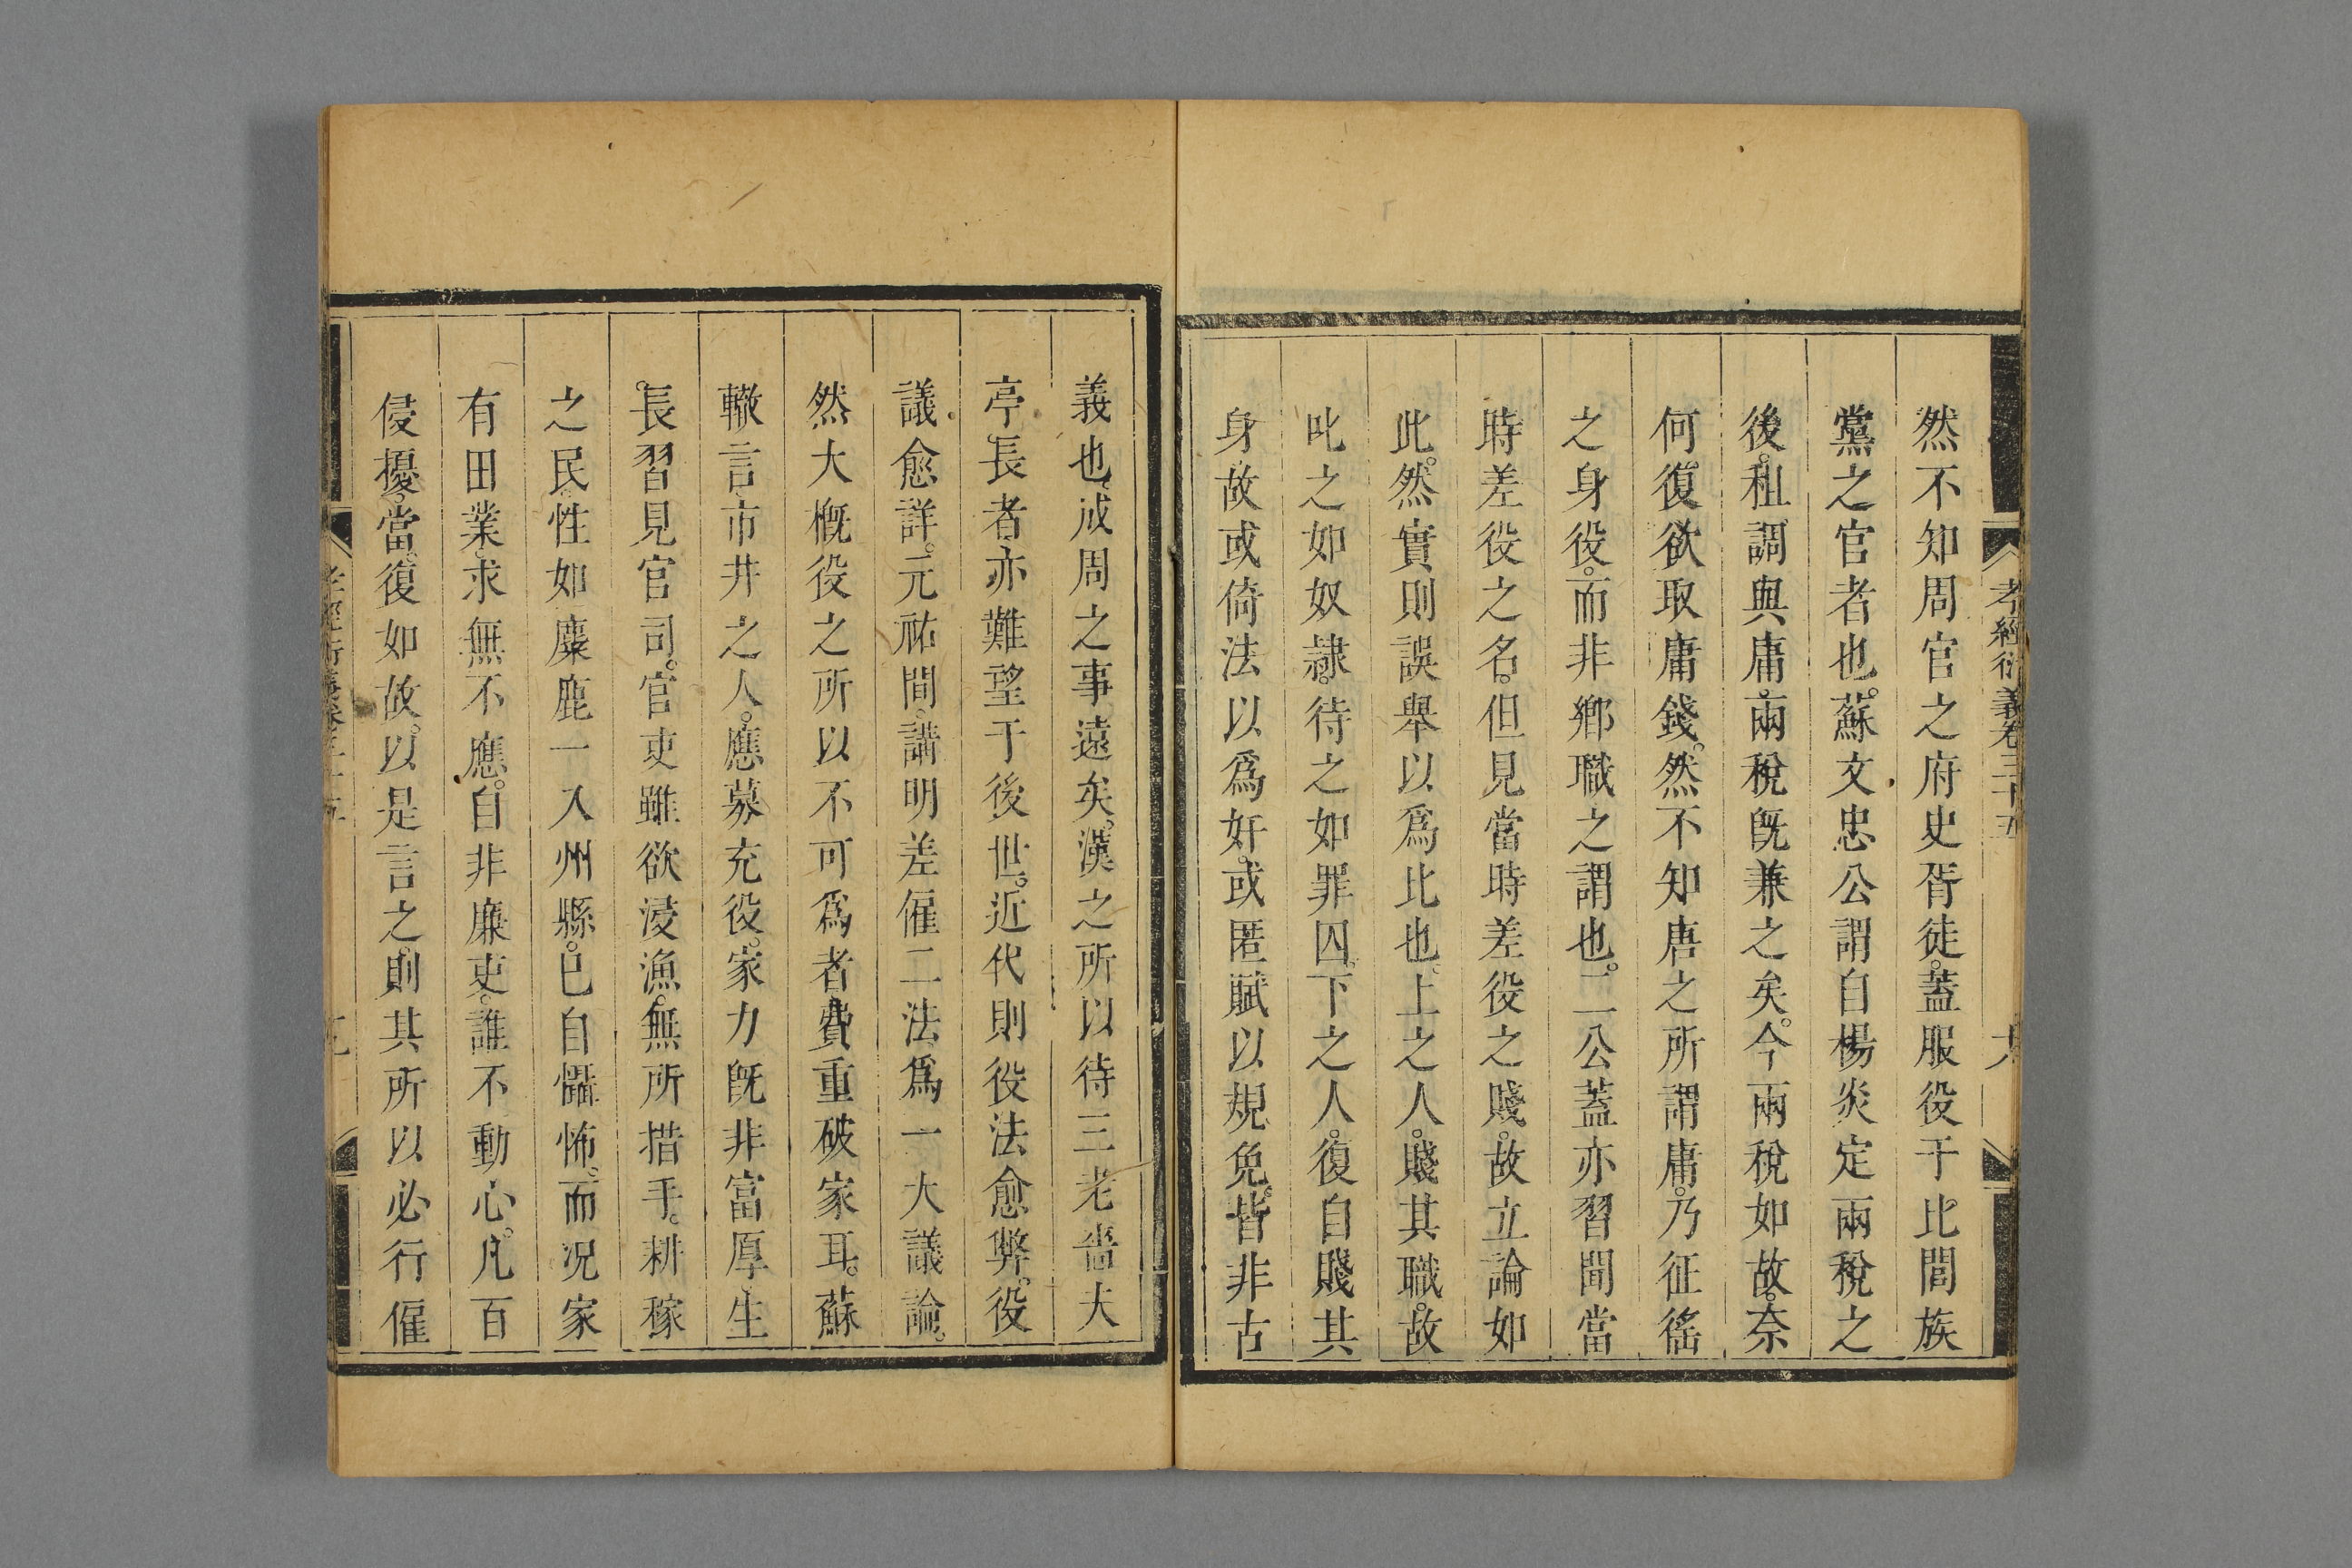 孝經衍義卷三十五
然不知周官之府史胥徒。蓋服役于比閭族
黨之官者也。蘇文忠公謂自楊炎定兩稅之
後。租調與庸。兩稅旣兼之矣。今兩稅如故。奈
何復欲取庸錢。然不知唐之所謂庸。乃征徭
之身役。而非鄉職之謂也。二公蓋亦習聞當
時差役之名。但見當時差役之賤。故立論如
此。然實則誤舉以爲比也。上之人。賤其職。故
叱之如奴隷。待之如罪囚。下之人。復自賤其
身。故或倚法以爲奸。或匿賦以規免。皆非古
義也。成周之事遠矣。漢之所以待三老嗇夫
亭長者。亦難望于後世。近代則役法愈弊。役
議愈詳。元祐間。講明差僱二法。爲一大議論。
然大概役之所以不可爲者。費重破家耳。蘇
轍言。市井之人。應募充役。家力旣非富厚。生
長習見官司。官吏雖欲浸漁。無所措手。耕稼
之民。性如麋鹿。一入州縣。已自懾怖。而況家
有田業。求無不應。自非廉吏。誰不動心。凡百
侵擾。當復如故。以是言之。則其所以必行僱
孝經衍義卷三十五